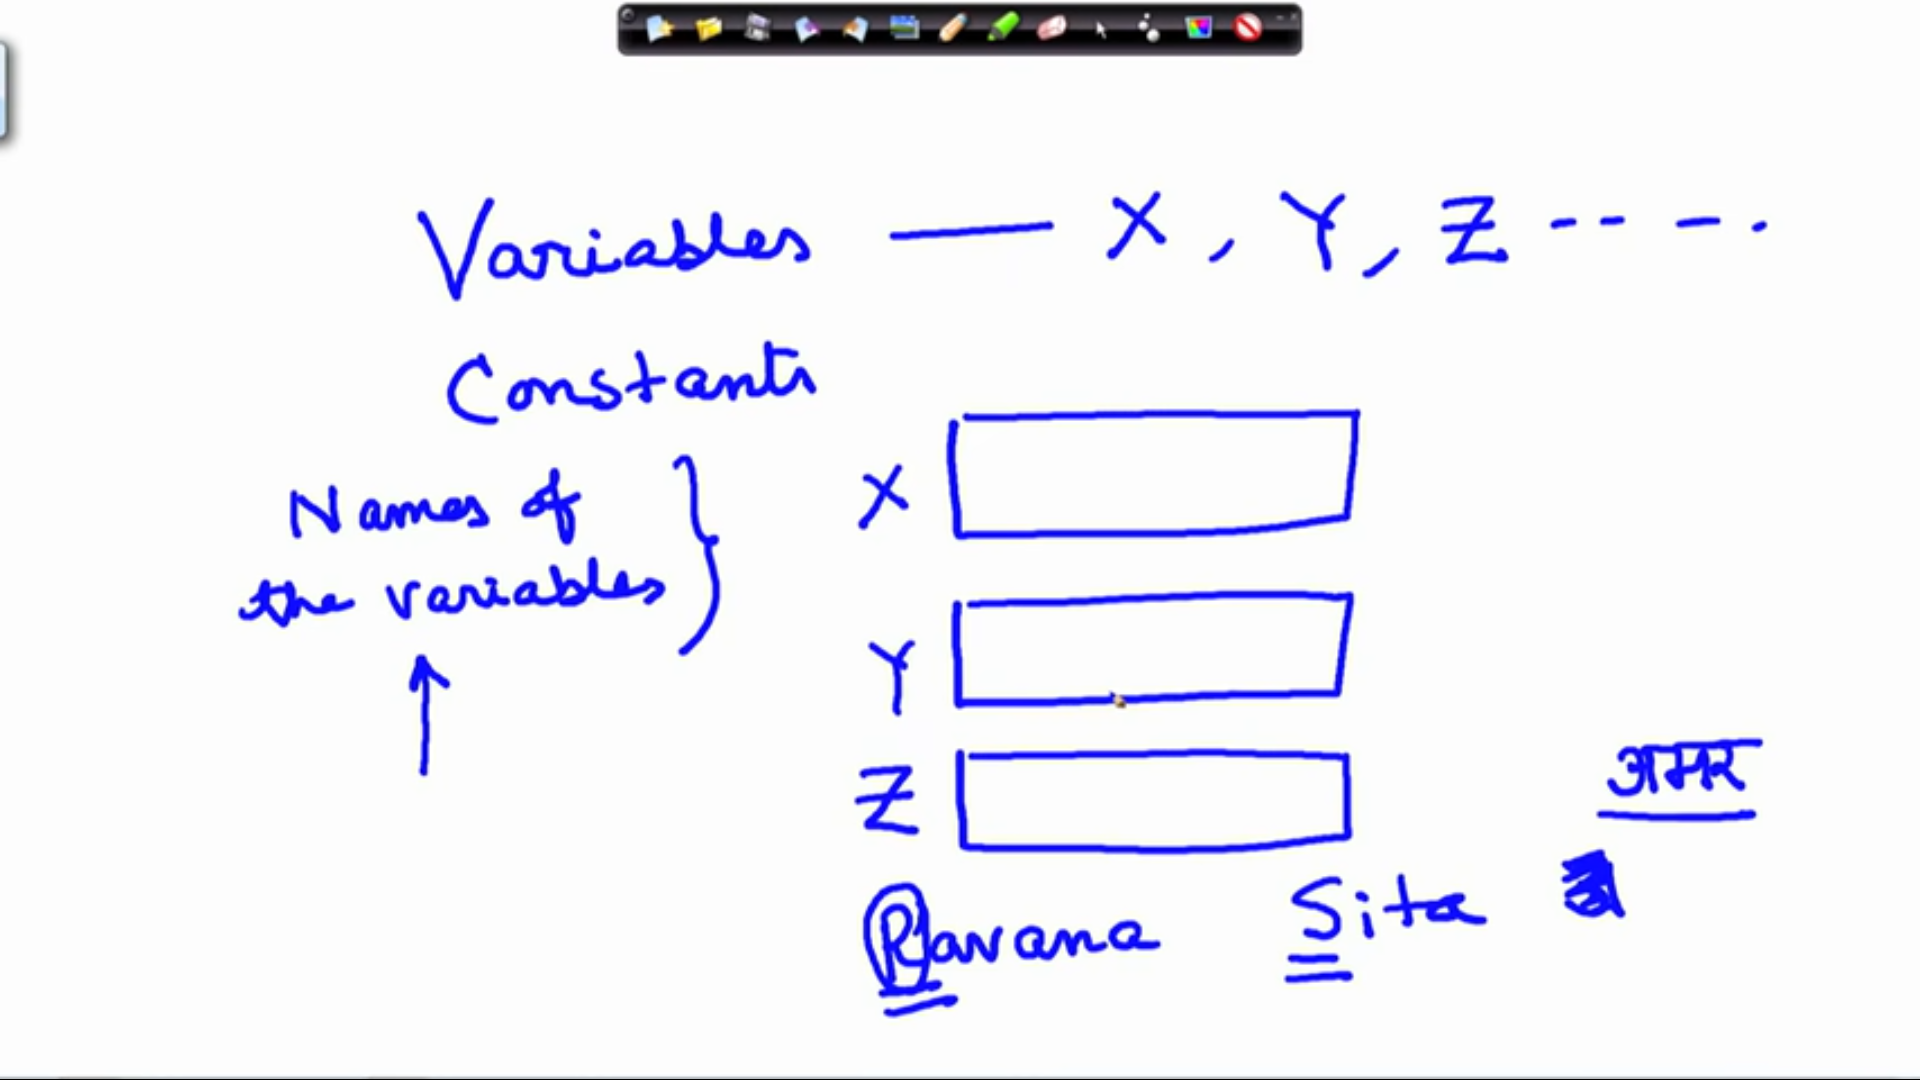 Variables — X, Y, Z -- — .
Constants
Names of
the variables
X
Y
Z
अमर
Ravana Sita